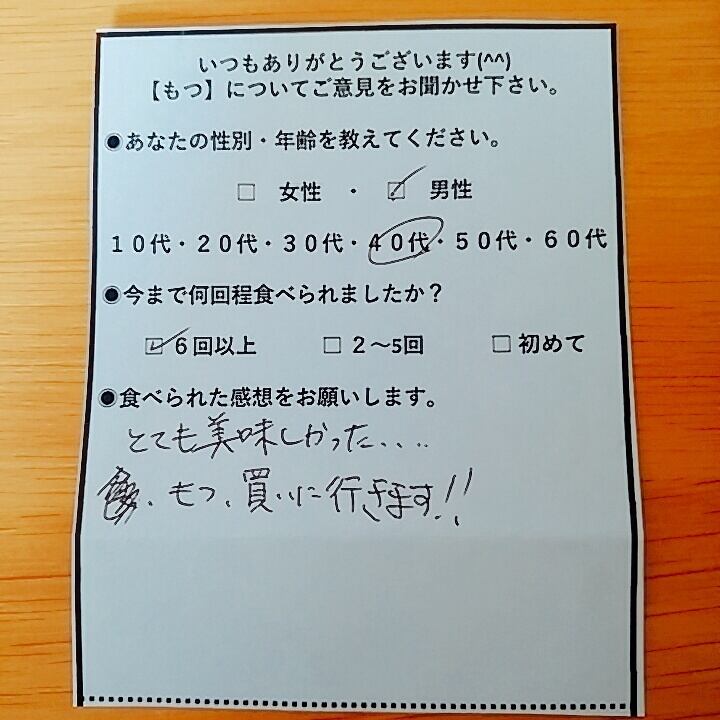 いつもありがとうございます(^^)
【もつ】についてご意見をお聞かせ下さい。
◉あなたの性別・年齢を教えてください。
□ 女性 ・ ☑ 男性
１０代・２０代・３０代・４０代・５０代・６０代
◉今まで何回程食べられましたか？
☑ ６回以上 □ ２～5回 □ 初めて
◉食べられた感想をお願いします。
とても美味しかった....
、もつ、買いに行きます!!